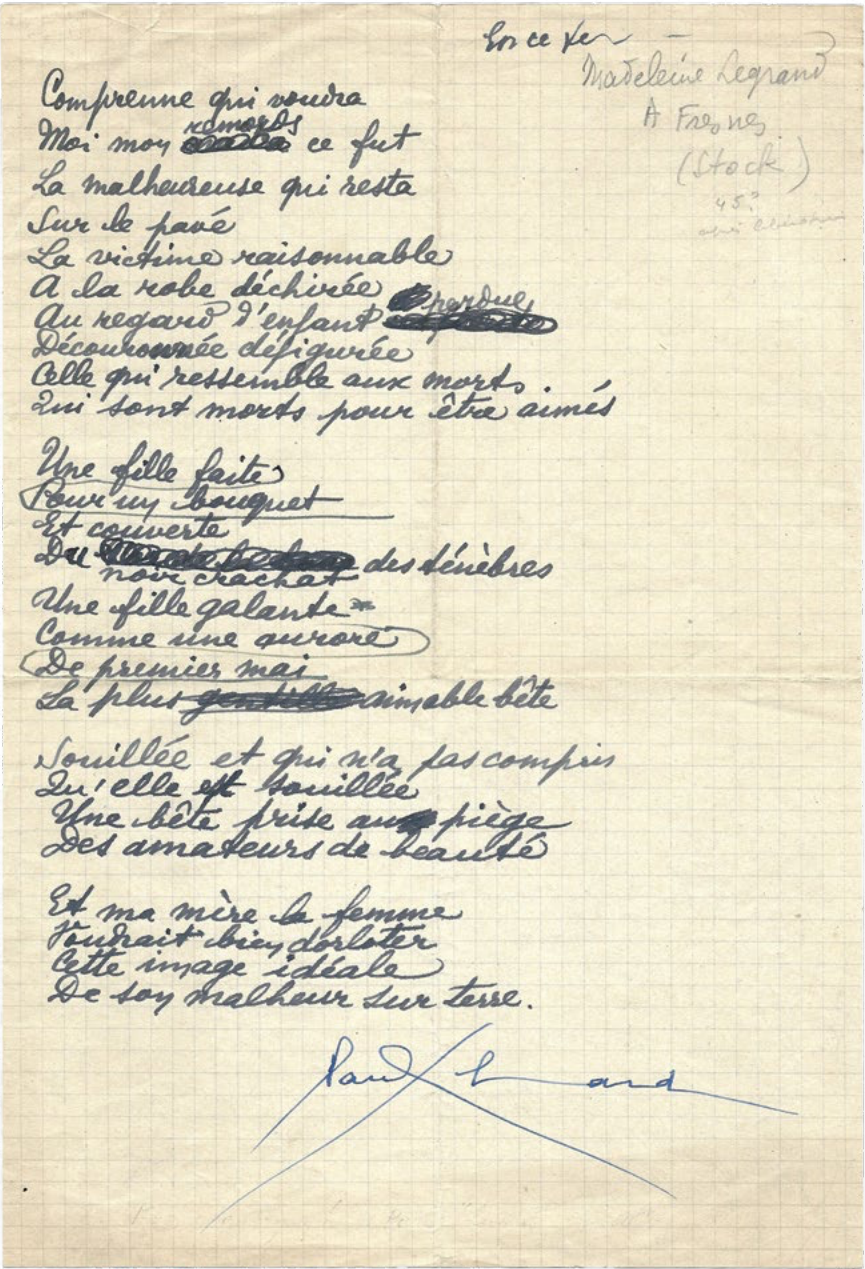 Madeleine Legrand
A Fresnes
(Stock)
45?
Comprenne qui voudra
Moi mon remords ce fut
La malheureuse qui resta
Sur le pavé
La victime raisonnable
A la robe déchirée
Au regard d'enfant perdue
Découronnée défigurée
Celle qui ressemble aux morts
Qui sont morts pour être aimés
Une fille faite
Pour un bouquet
Et couverte
Du noir crachat des ténèbres
Une fille galante
Comme une aurore
De premier mai
La plus aimable bête
Souillée et qui n'a pas compris
Qu'elle est souillée
Une bête prise au piège
Des amateurs de beauté
Et ma mère la femme
Voudrait bien dorloter
Cette image idéale
De son malheur sur terre.
Paul Eluard